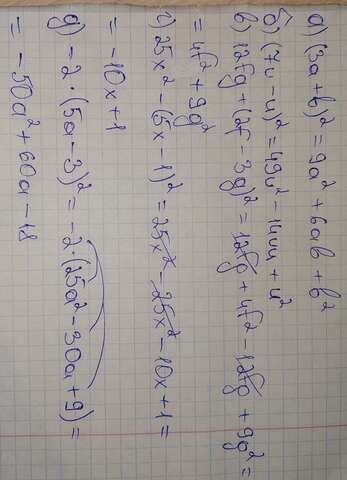 а) (3a+b)² = 9a² + 6ab + b²
б) (7v-u)² = 49v² - 14vu + u²
в) 12fg + (2f - 3g)² = 12fg + 4f² - 12fg + 9g² =
= 4f² + 9g²
г) 25x² - (5x - 1)² = 25x² - 25x² - 10x + 1 =
= -10x + 1
д) -2·(5a-3)² = -2·(25a² - 30a + 9) =
= -50a² + 60a - 18